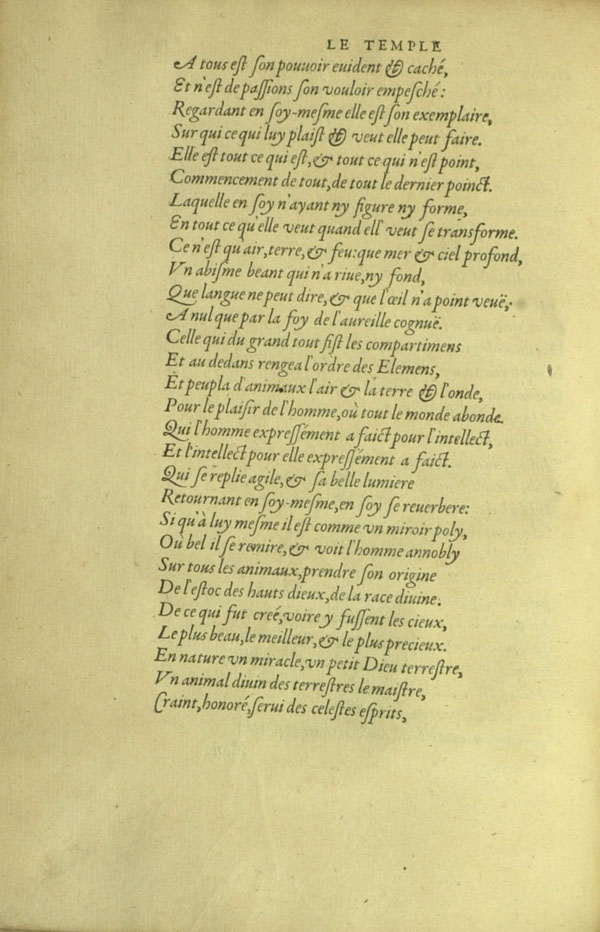 LE TEMPLE
A tous est son pouuoir euident & caché,
Et n'est de passions son vouloir empesché:
Regardant en soy-mesme elle est son exemplaire,
Sur qui ce qui luy plaist & veut elle peut faire.
Elle est tout ce qui est, & tout ce qui n'est point,
Commencement de tout, de tout le dernier poinct.
Laquelle en soy n'ayant ny figure ny forme,
En tout ce qu'elle veut quand ell' veut se transforme.
Ce n'est qu'air, terre, & feu: que mer & ciel profond,
Vn abisme beant qui n'a riue, ny fond,
Que langue ne peut dire, & que l'œil n'a point veuë,
A nul que par la foy de l'aureille cognuë.
Celle qui du grand tout fist les compartimens
Et au dedans rengea l'ordre des Elemens,
Et peupla d'animaux l'air & la terre & l'onde,
Pour le plaisir de l'homme, où tout le monde abonde.
Qui l'homme expressément a faict pour l'intellect,
Et l'intellect pour elle expressément a faict.
Qui se replie agile, & sa belle lumiere
Retournant en soy-mesme, en soy se reuerbere:
Si qu'à luy mesme il est comme vn miroir poly,
Où bel il se remire, & voit l'homme annobly
Sur tous les animaux, prendre son origine
De l'estoc des hauts dieux, de la race diuine.
De ce qui fut creé, voire y fussent les cieux,
Le plus beau, le meilleur, & le plus precieux.
En nature vn miracle, vn petit Dieu terrestre,
Vn animal diuin des terrestres le maistre,
Craint, honoré, serui des celestes esprits,